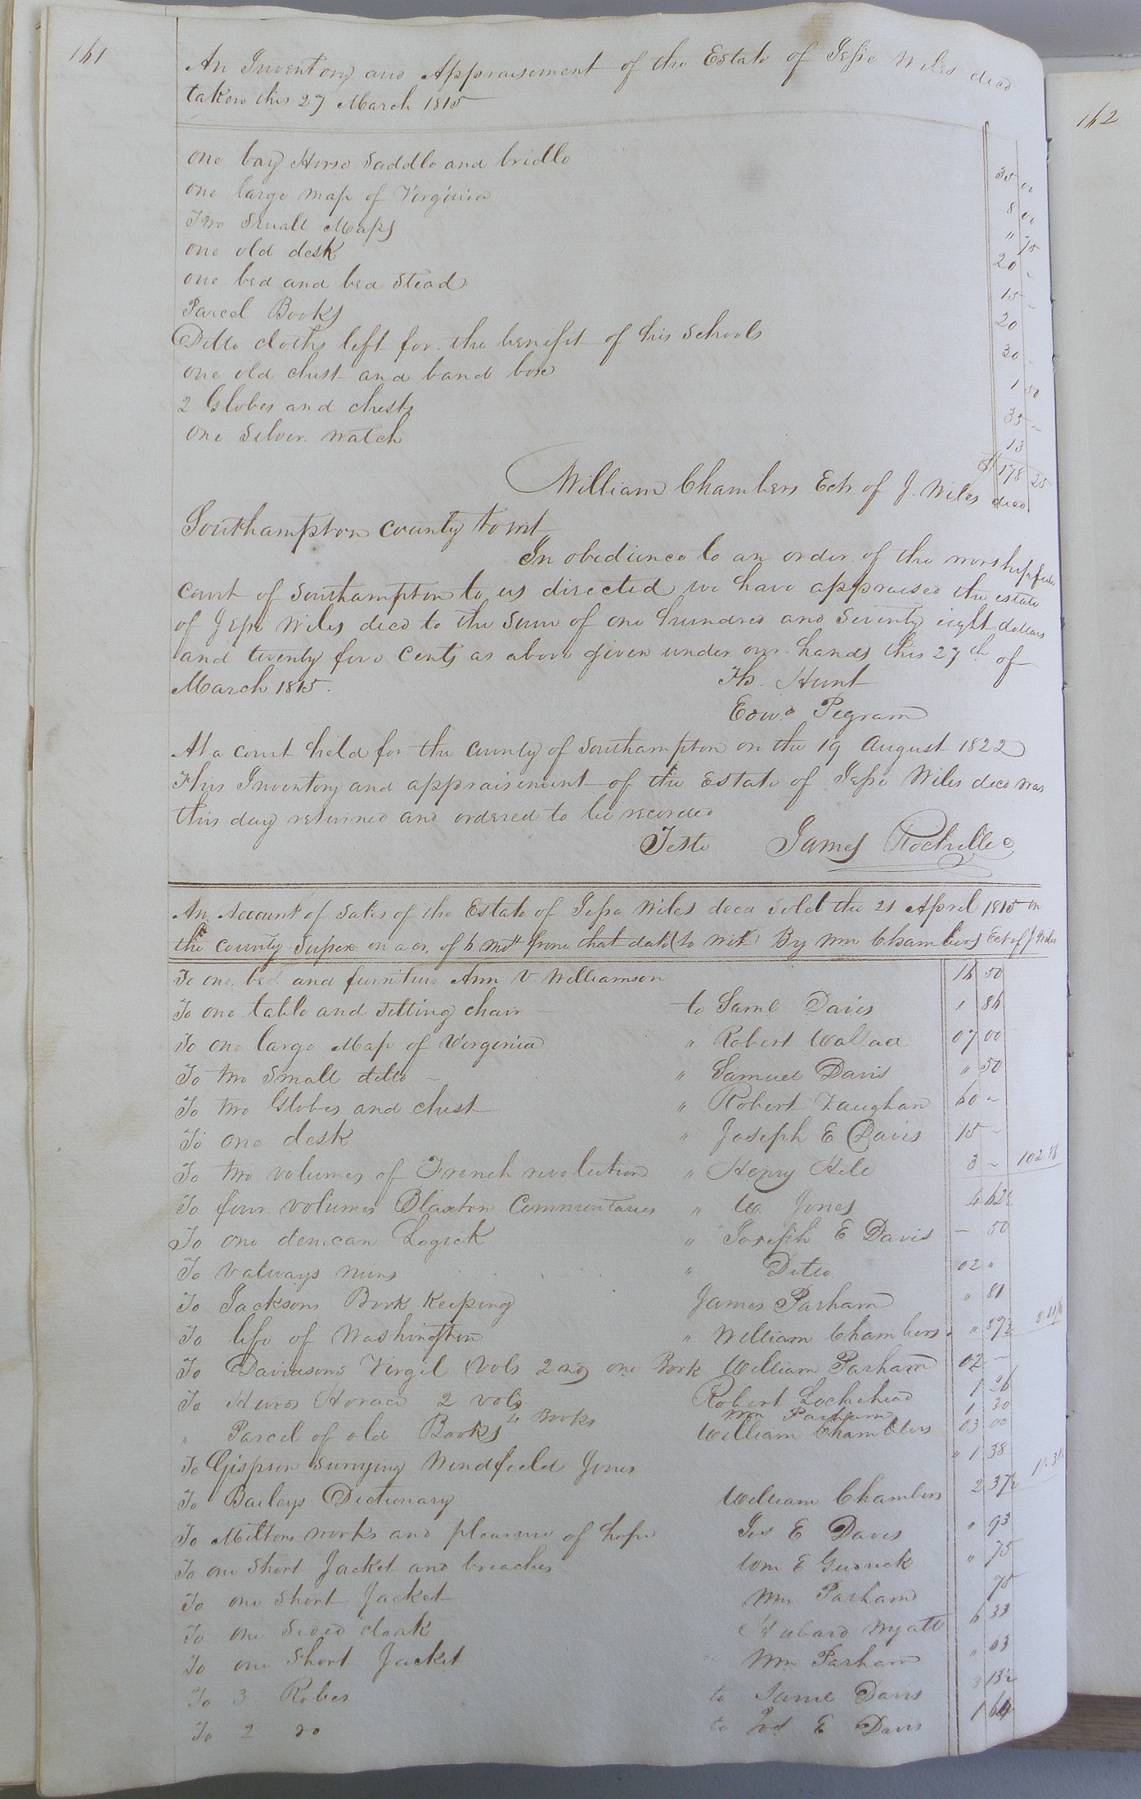 161
162
An Inventory and Appraisement of the Estate of Jesse Wiles decd
taken this 27 March 1815
one bay Horse Saddle and bridle 35 00
one large map of Virginia 8 00
Two Small Maps " 75
one old desk 20 -
one bed and bed Stead 15 -
Parcel Books 20
Ditto cloths left for the benefit of his Schools 30 -
one old chest and band box 1 50
2 Globes and chests 35 -
one Silver watch 13
$ 178 25
William Chambers Exr of J. Wiles decd
Southampton County to wit
In obedience to an order of the worshipful
Court of Southampton to us directed we have appraised the estate
of Jesse Wiles decd to the Sum of one hundred and Seventy eight dollars
and twenty five Cents as above given under our hands this 27th of
March 1815.
Th. Hunt
Edwd Pegram
At a court held for the County of Southampton on the 19 August 1822
This Inventory and appraisement of the Estate of Jesse Wiles decd was
this day returned and ordered to be recorded
Teste James Rochelle c
An Account of Sales of the Estate of Jesse Wiles decd Sold the 21 April 1815 in
the County Sussex on a cr. of 6 mots from that date (to wit) By Wm Chambers Exr of J Wiles
To one bed and furniture Ann V Williamson 16 50
To one table and Setting chair to Saml Davis 1 86
To one large Map of Virginia " Robert Wallace 07 00
To two Small ditto " Samuel Davis " 50
To two Globes and chest " Robert Vaughan 60 -
To one desk " Joseph E Davis 15 -
To two volumes of French revolution " Henry Hile 3 -
To four volumes Blaxton Commentaries " W Jones 4 62½
To one Logick " Joseph E Davis - 50
To " Ditto 02 "
To Jacksons Book Keeping James Parham " 81
To life of Washington " William Chambers " 87½
To Davidsons Virgil (Vols 2 and one Book William Parham 02 -
To Horace 2 vols Robert Lockhead 1 26
4 Books Wm Parham 1 30
" Parcel of old Books William Chambers 03 00
To Gispson Surveying Windfield Jones " 1 38
To Baileys Dictionary William Chambers 2 37½
To Miltons works and pleasure of hope Jos E Davis " 93
To one Short Jacket and breaches Wm E " 75
To one Short Jacket Wm Parham 75
To one cloak Hubard Wyatt 6 33
To one Short Jacket Wm Parham " 63
To 3 Robes to Saml Davis
To 2 Do to Jos E Davis 1 64